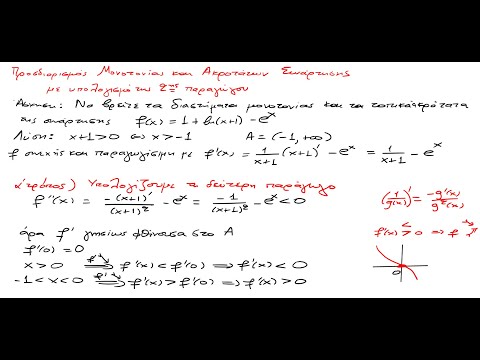 Προσδιορισμός Μονοτονίας και Ακροτάτων Συνάρτησης
με υπολογισμό της 2ης παραγώγου
Άσκηση: Να βρείτε τα διαστήματα μονοτονίας και τα τοπικά ακρότατα
της συνάρτησης f(x) = 1 + ln(x+1) - e^x
Λύση: x+1>0 ⇔ x>-1 A = (-1, +∞)
f συνεχής και παραγωγίσιμη με f'(x) = 1/(x+1) (x+1)' - e^x = 1/(x+1) - e^x
α' τρόπος) Υπολογίζουμε τη δεύτερη παράγωγο
f''(x) = -(x+1)'/(x+1)² - e^x = -1/(x+1)² - e^x < 0
(1/g(x))' = -g'(x)/g²(x)
άρα f' γνησίως φθίνουσα στο A
f'(0) = 0
x > 0 ⇒ f'(x) < f'(0) ⇒ f'(x) < 0
-1 < x < 0 ⇒ f'(x) > f'(0) ⇒ f'(x) > 0
0